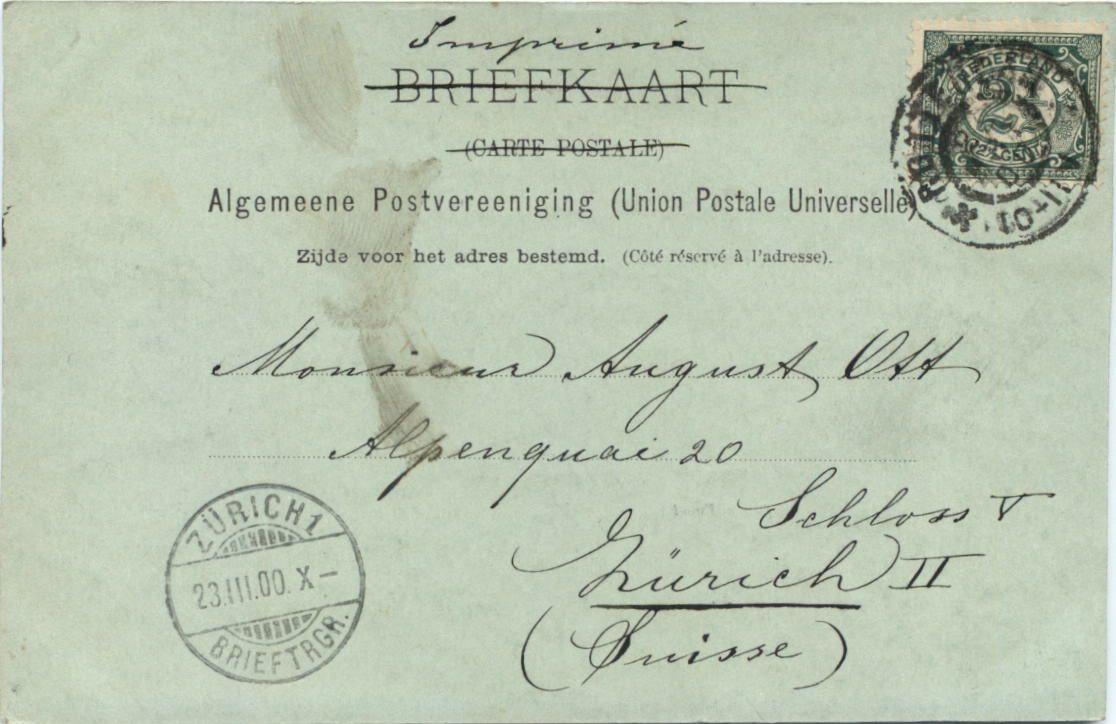 Imprimé
BRIEFKAART
(CARTE POSTALE)
Algemeene Postvereeniging (Union Postale Universelle)
Zijde voor het adres bestemd. (Côté réservé à l'adresse).
NEDERLAND
2½
CENT
Monsieur August Ott
Alpenquai 20
Schloss V
Zürich II
(Suisse)
ZÜRICH 1
23.III.00. X–
BRIEFTRGR.